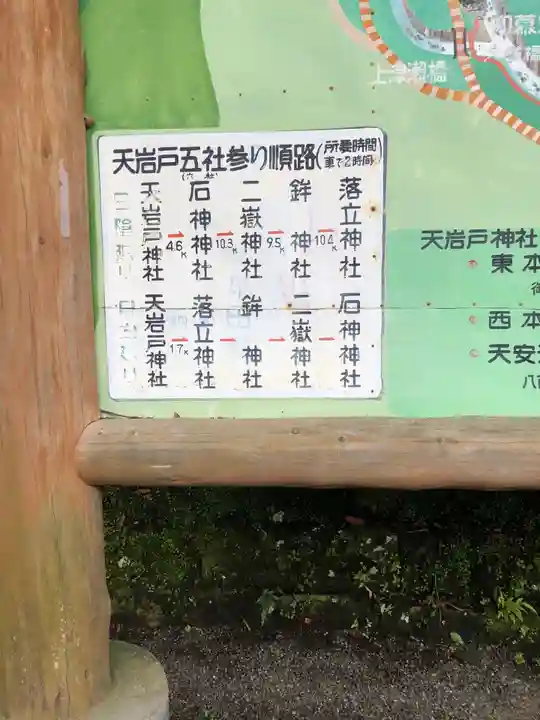 上津瀬橋
天岩戸五社参り順路(所要時間
車で2時間)
天岩戸神社
→
4.6K
石神神社
→
10.3K
二嶽神社
→
9.5K
鉾神社
→
10.4K
落立神社
天岩戸神社
→
1.7K
落立神社
→
鉾神社
→
二嶽神社
→
石神神社
天岩戸神社
・東本
・西本
・天安
八百